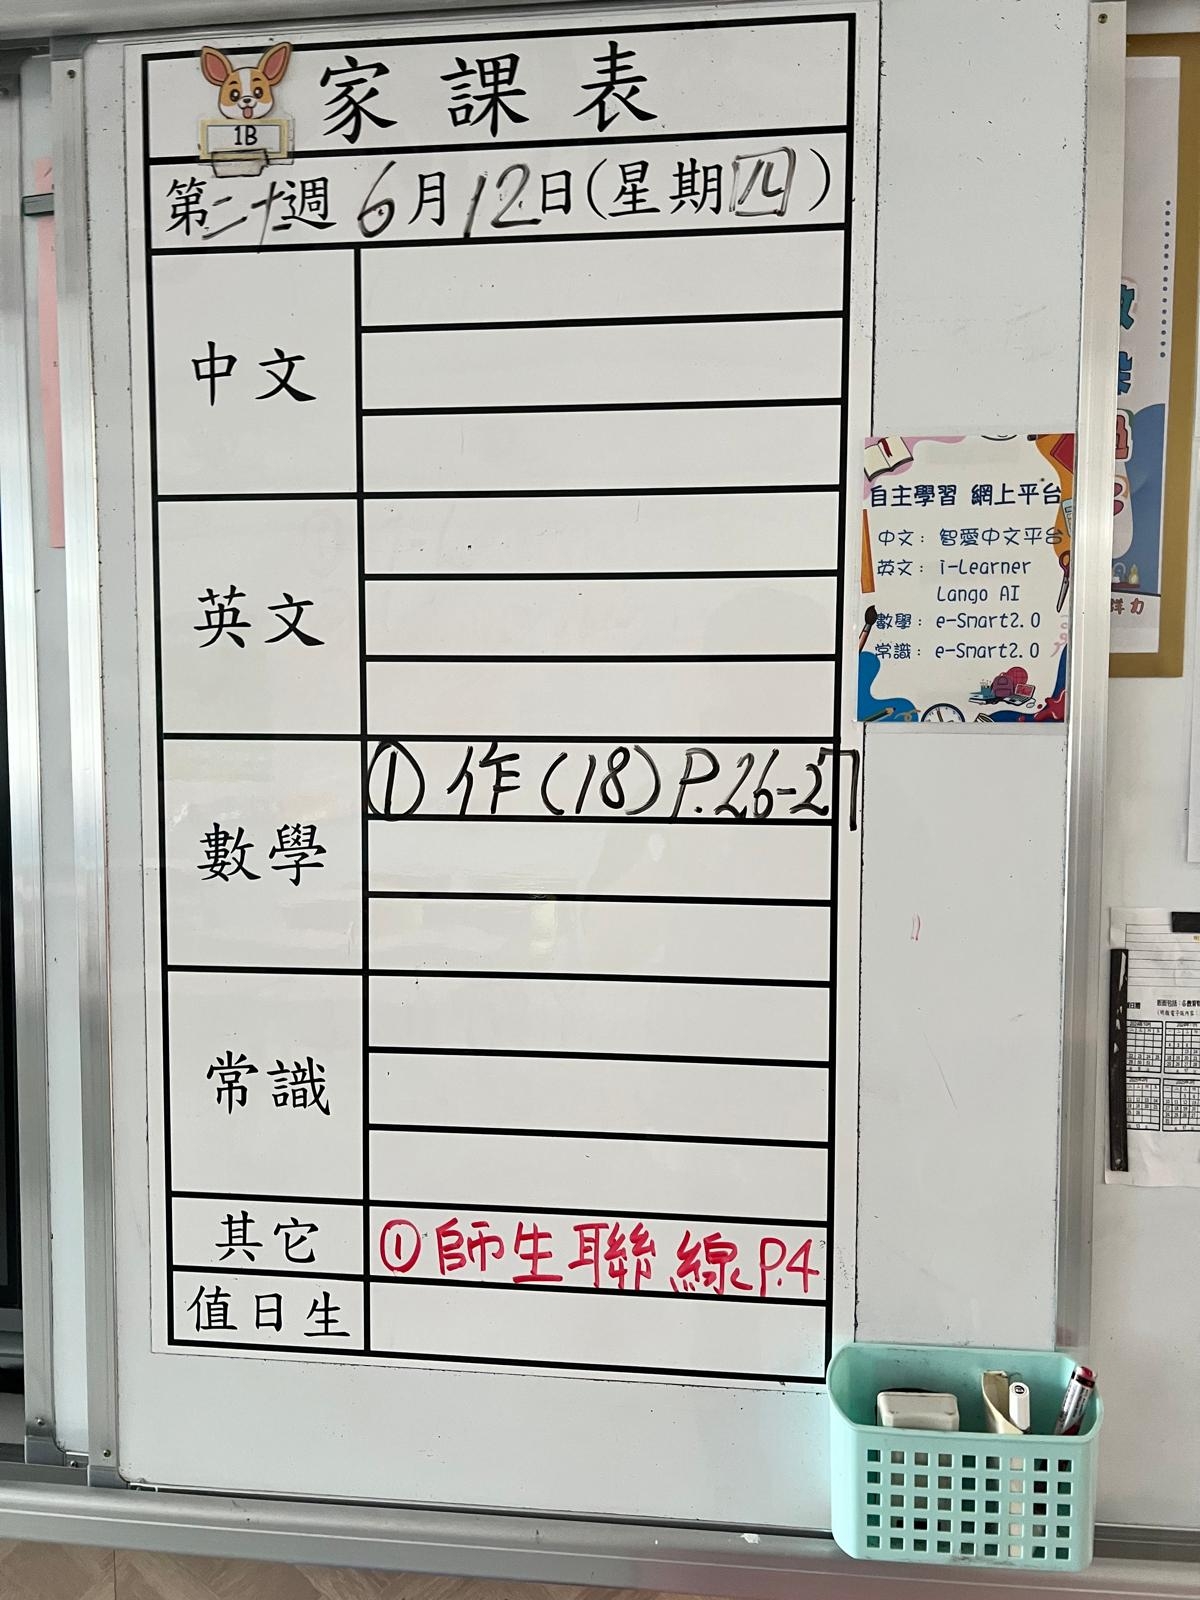 家課表
1B
第二十週 6月12日(星期四)
中文
英文
數學
① 作(18)P.26-27
常識
其它
① 師生聯線P.4
值日生
自主學習 網上平台
中文：智愛中文平台
英文：i-Learner
Lango AI
數學：e-Smart2.0
常識：e-Smart2.0